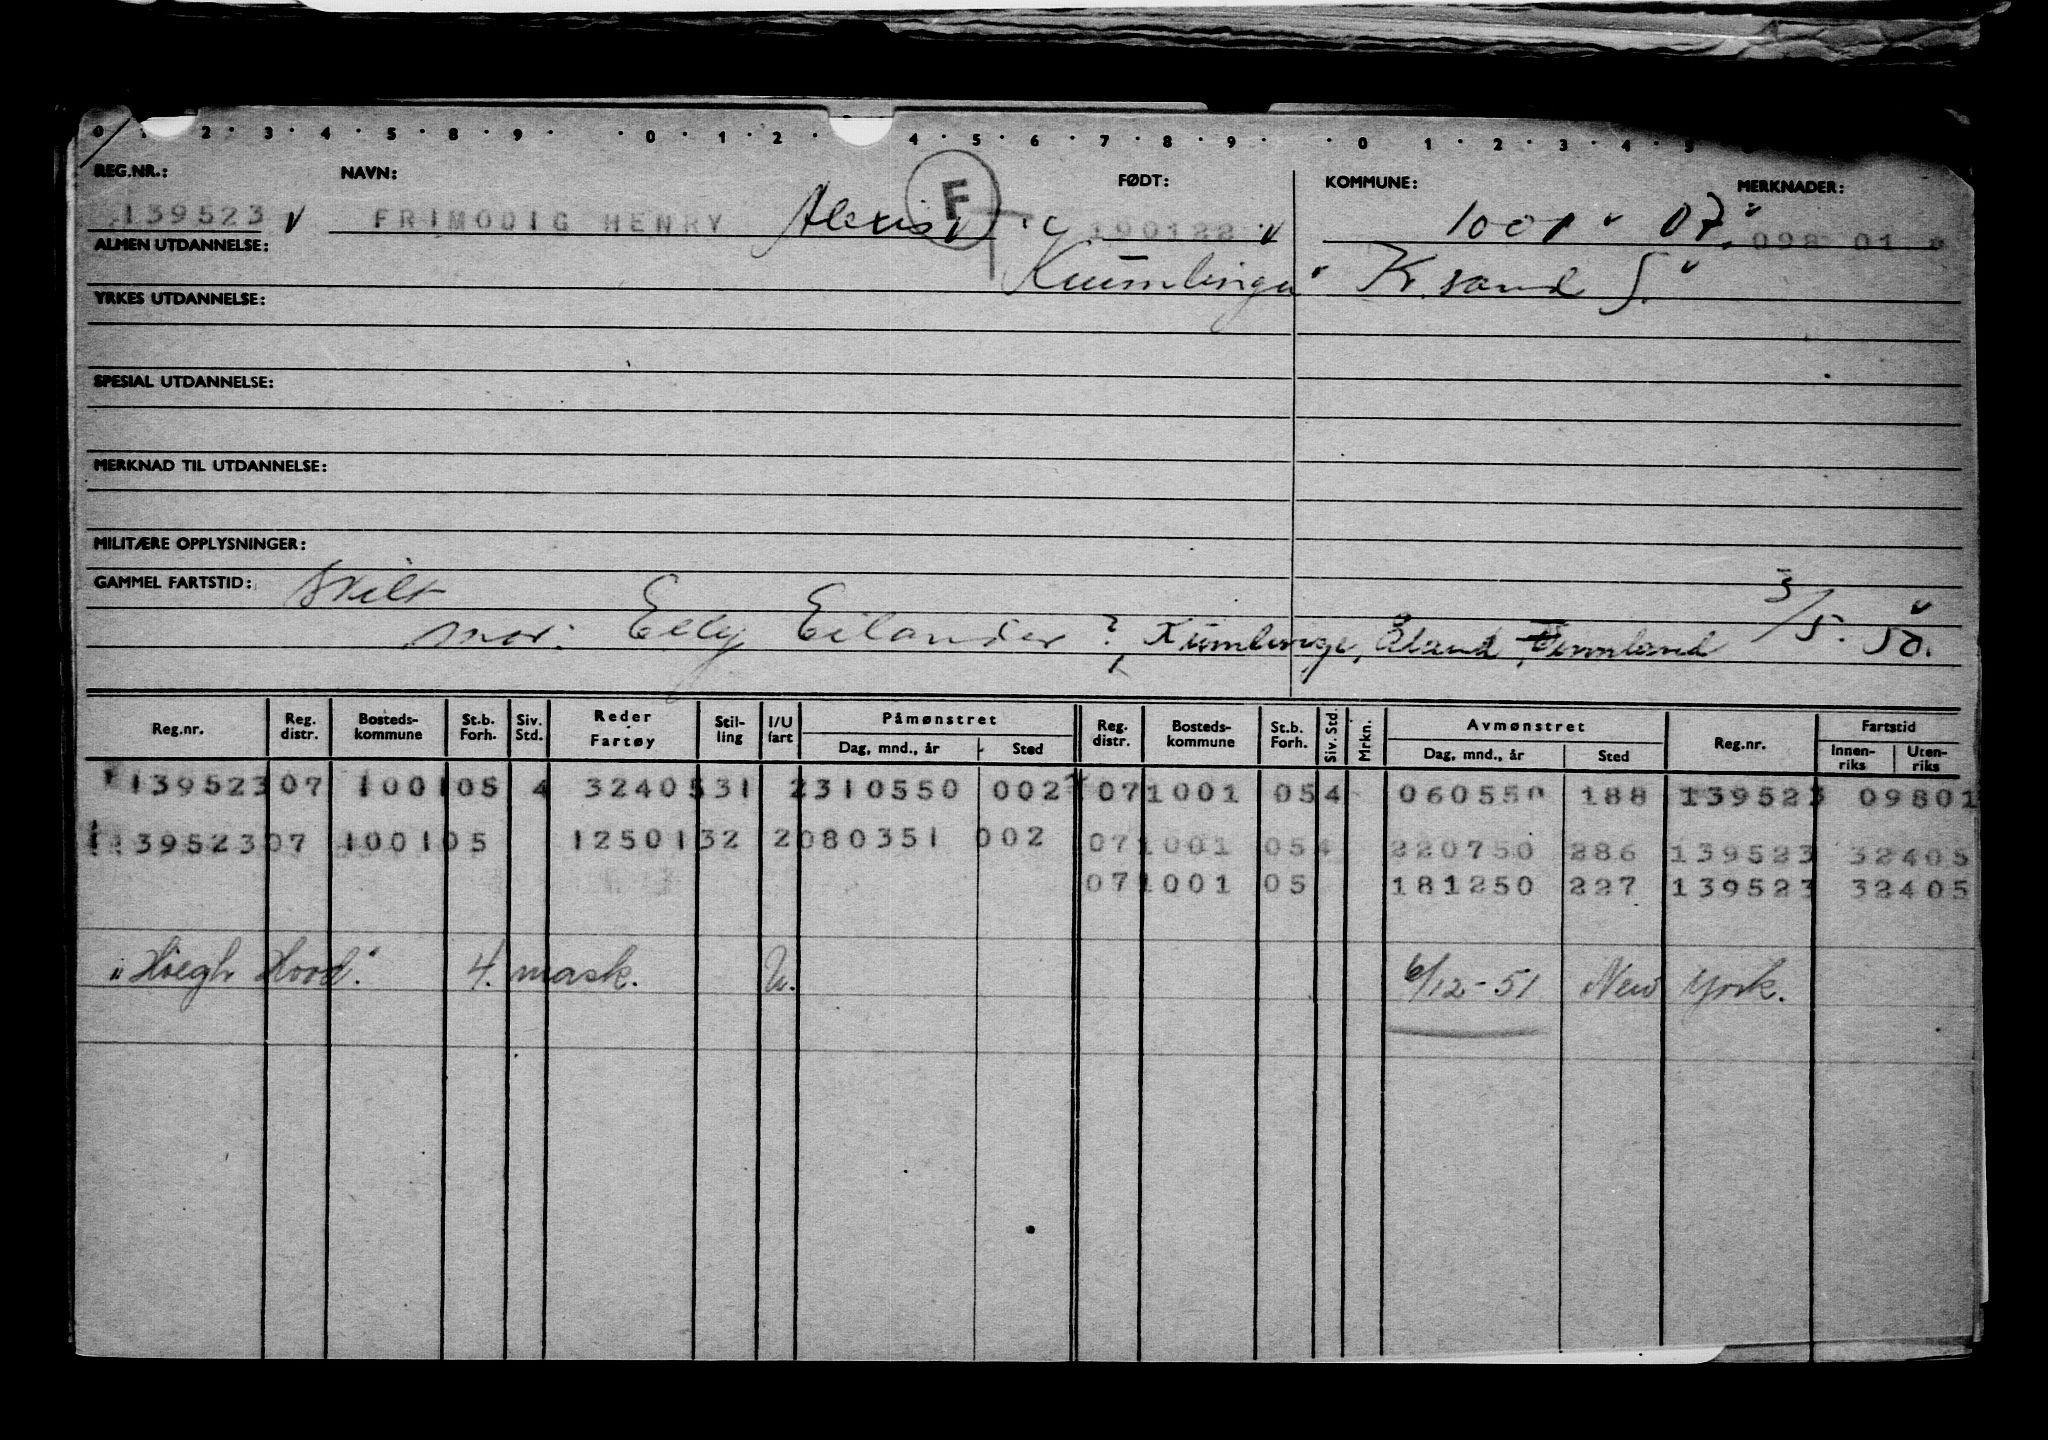 0 1 · 2 · 3 · 4 · 5 · 8 · 9 · · 0 · 1 · 2 · 4 · 5 · 6 · 7 · 8 · 9 · · 0 · 1 · 2 · 3 · 4 · 5
REG.NR.: NAVN: F FØDT: KOMMUNE: MERKNADER:
139523 FRIMODIG HENRY Alexis 190122 1001 07. 098 01
ALMEN UTDANNELSE: Kumlinge Kr.sand S.
YRKES UTDANNELSE:
SPESIAL UTDANNELSE:
MERKNAD TIL UTDANNELSE:
MILITÆRE OPPLYSNINGER:
GAMMEL FARTSTID: skilt
mor: Elly Eilander ? Kumlinge, Åland, Finnland 3/5. 50.
Reg.nr. Reg. distr. Bosteds-kommune St.b. Forh. Siv. Std. Reder Fartøy Stil-ling I/U fart Påmønstret Dag, mnd., år Sted Reg. distr. Bosteds-kommune St.b. Forh. Siv. Std. Mrkn. Avmønstret Dag, mnd., år Sted Reg.nr. Fartstid Innen-riks Uten-riks
139523 07 1001 05 4 32405 31 2 310550 002 07 1001 05 4 060550 188 139523 09801
139523 07 1001 05 12501 32 2 080351 002 07 1001 05 4 220750 286 139523 32405
07 1001 05 181250 227 139523 32405
"Höegh Hood." 4. mask. U. 6/12-51 New York.